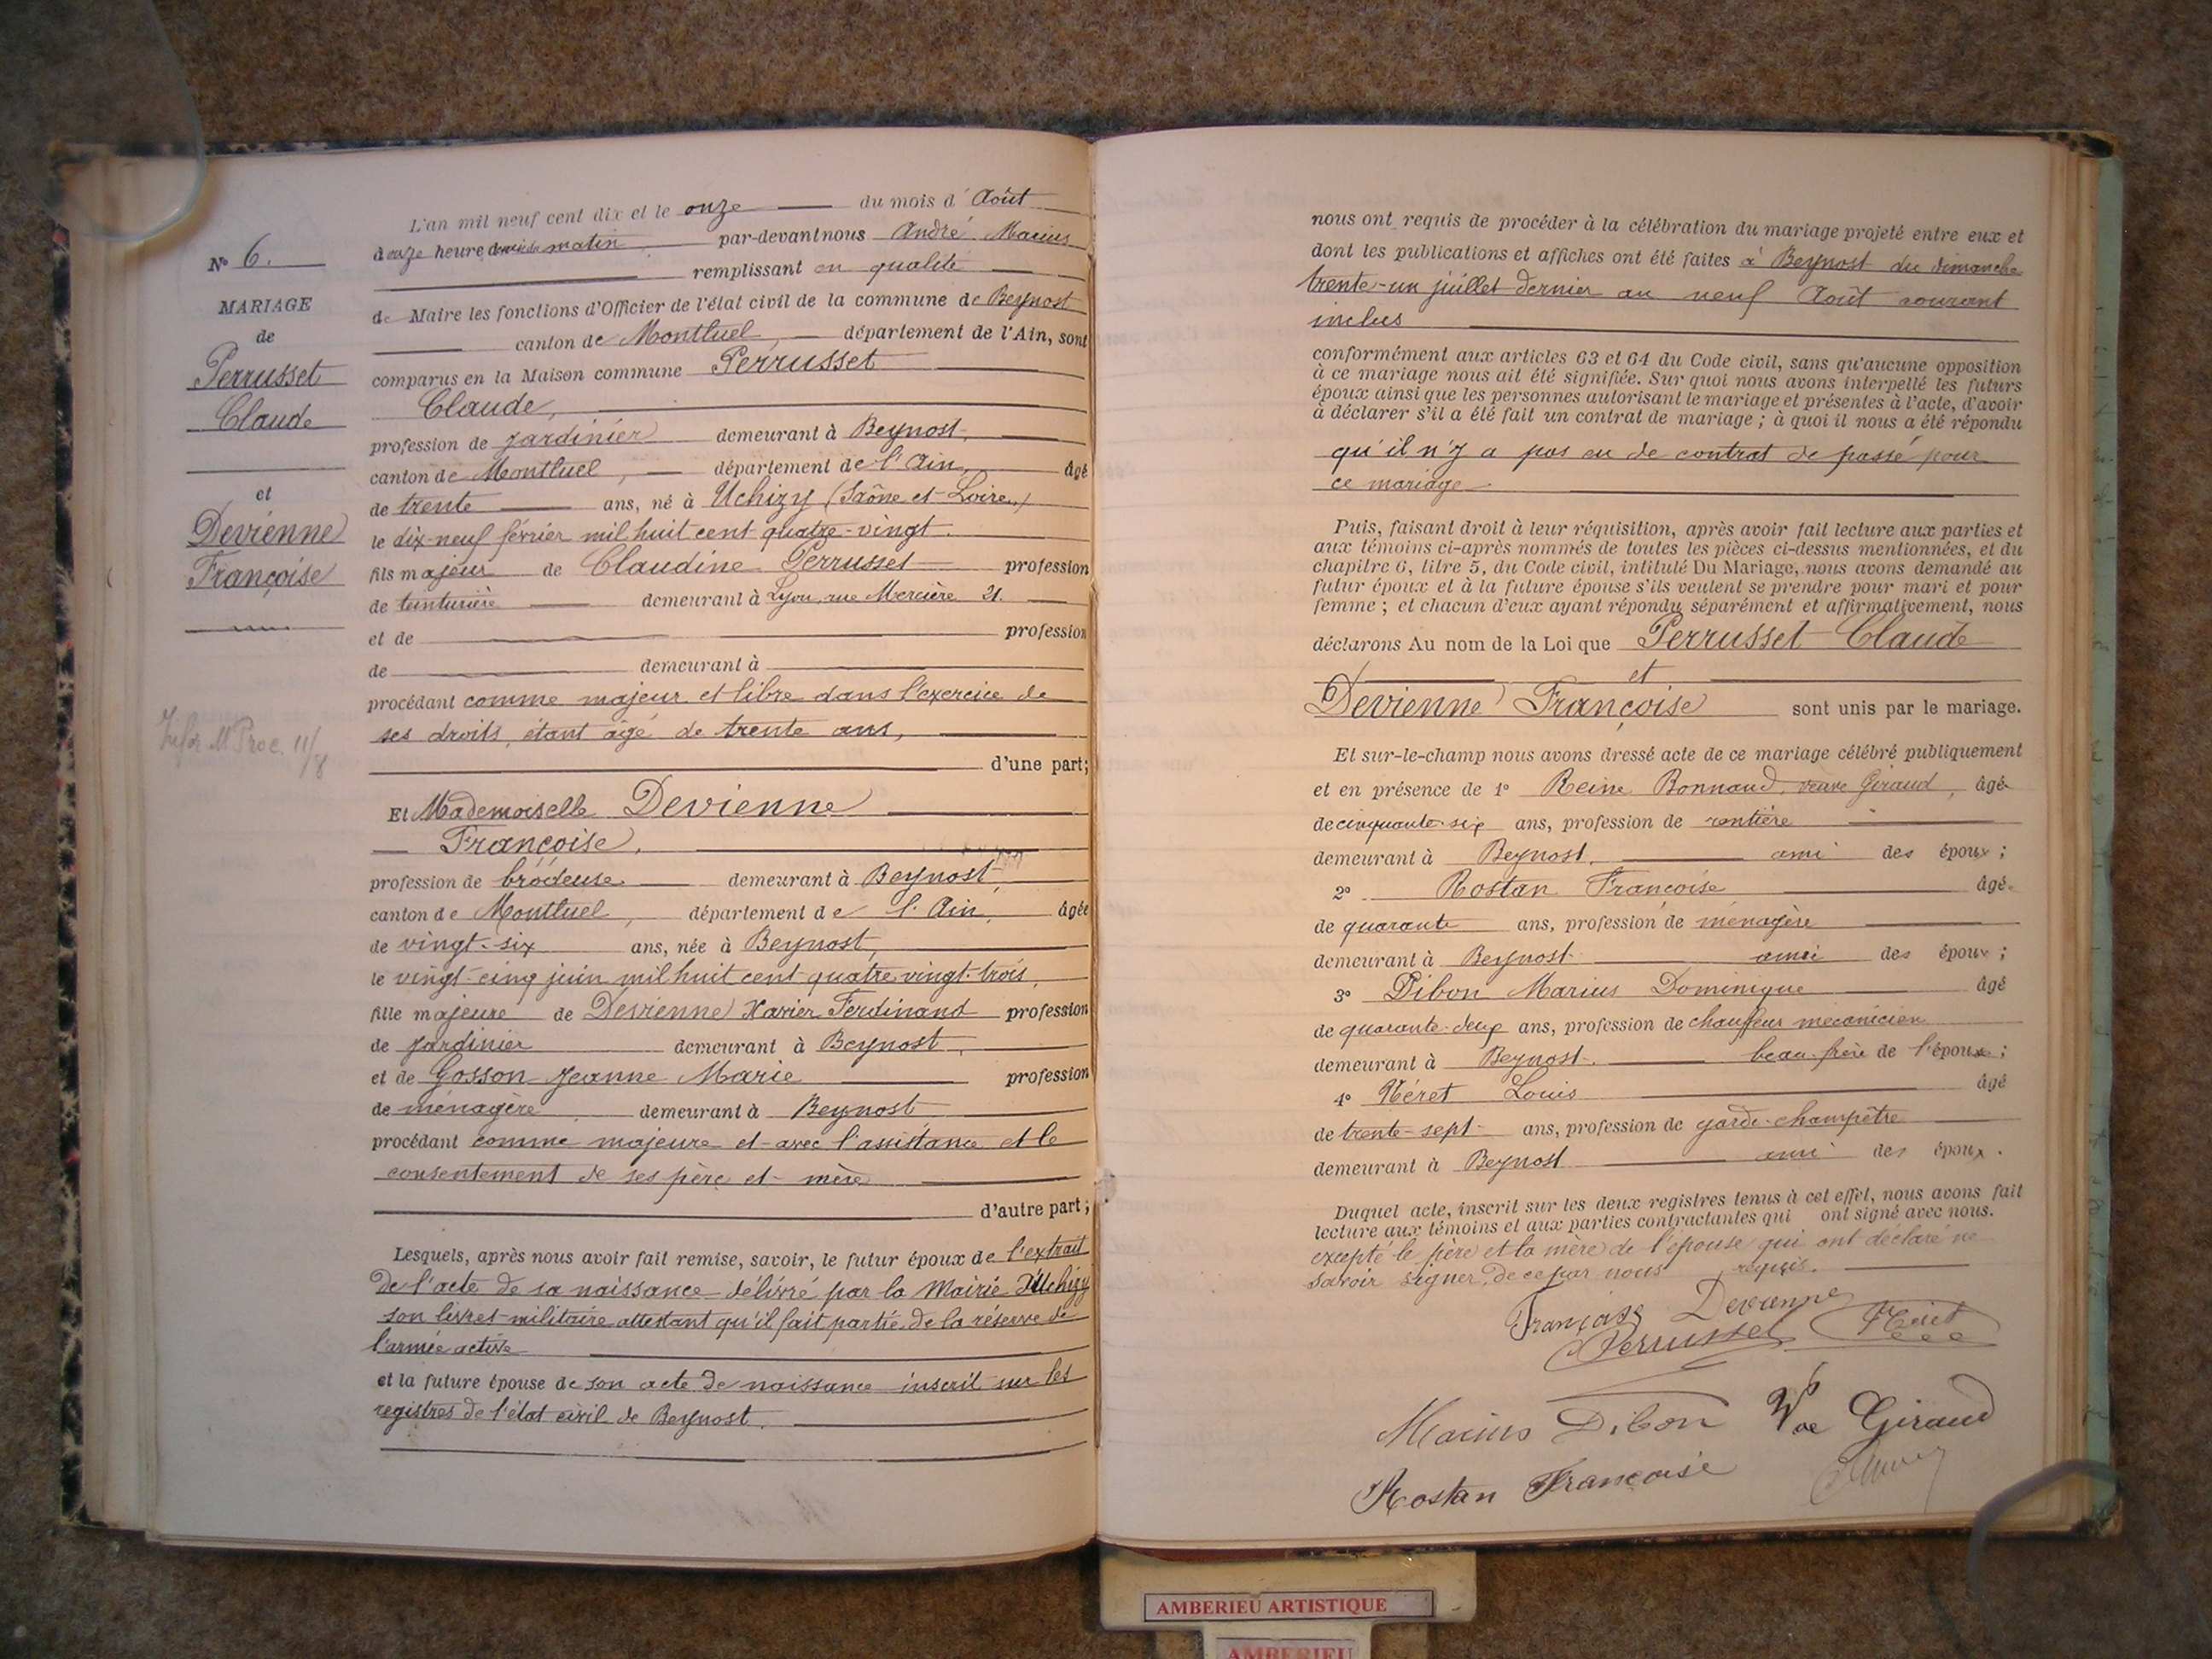 N° 6.
MARIAGE
de
Perrusset
Claude
et
Devienne
Françoise
M Proc. 11/8
L'an mil neuf cent dix et le onze du mois d' Août
à onze heure demie du matin par-devant nous André Marius
remplissant en qualité
de Maire les fonctions d'Officier de l'état civil de la commune de Beynost
canton de Montluel département de l'Ain, sont
comparus en la Maison commune Perrusset
Claude,
profession de jardinier demeurant à Beynost,
canton de Montluel, département de l'Ain, âgé
de trente ans, né à Uchizy (Saône et Loire,)
le dix-neuf février mil huit cent quatre-vingt.
fils majeur de Claudine Perrusset profession
de teinturière demeurant à Lyon, rue Mercière 21.
et de profession
de demeurant à
procédant comme majeur et libre dans l'exercice de
ses droits, étant âgé de trente ans,
d'une part;
Et Mademoiselle Devienne
Françoise,
profession de brodeuse demeurant à Beynost,
canton de Montluel, département de l'Ain, âgée
de vingt-six ans, née à Beynost,
le vingt-cinq juin mil huit cent quatre vingt-trois,
fille majeure de Devienne Xavier Ferdinand profession
de jardinier demeurant à Beynost,
et de Gosson Jeanne Marie profession
de ménagère demeurant à Beynost
procédant comme majeure et avec l'assistance et le
consentement de ses père et mère
d'autre part;
Lesquels, après nous avoir fait remise, savoir, le futur époux de l'extrait
de l'acte de sa naissance délivré par la Mairie d'Uchizy
son livret militaire attestant qu'il fait partie de la réserve de
l'armée active
et la future épouse de son acte de naissance inscrit sur les
registres de l'état civil de Beynost.
nous ont requis de procéder à la célébration du mariage projeté entre eux et
dont les publications et affiches ont été faites à Beynost du dimanche
trente-un juillet dernier au neuf Août courant
inclus
conformément aux articles 63 et 64 du Code civil, sans qu'aucune opposition
à ce mariage nous ait été signifiée. Sur quoi nous avons interpellé les futurs
époux ainsi que les personnes autorisant le mariage et présentes à l'acte, d'avoir
à déclarer s'il a été fait un contrat de mariage ; à quoi il nous a été répondu
qu'il n'y a pas eu de contrat de passé pour
ce mariage
Puis, faisant droit à leur réquisition, après avoir fait lecture aux parties et
aux témoins ci-après nommés de toutes les pièces ci-dessus mentionnées, et du
chapitre 6, titre 5, du Code civil, intitulé Du Mariage, nous avons demandé au
futur époux et à la future épouse s'ils veulent se prendre pour mari et pour
femme ; et chacun d'eux ayant répondu séparément et affirmativement, nous
déclarons Au nom de la Loi que Perrusset Claude
et
Devienne Françoise sont unis par le mariage.
Et sur-le-champ nous avons dressé acte de ce mariage célébré publiquement
et en présence de 1° Reine Bonnaud, veuve Giraud, âgé
de cinquante-six ans, profession de rentière
demeurant à Beynost, ami des époux ;
2° Rostan Françoise âgé
de quarante ans, profession de ménagère
demeurant à Beynost ami des époux ;
3° Dibon Marius Dominique âgé
de quarante-deux ans, profession de chauffeur mécanicien
demeurant à Beynost. beau-frère de l'épouse ;
4° Héret Louis âgé
de trente-sept ans, profession de garde-champêtre
demeurant à Beynost ami des époux.
Duquel acte, inscrit sur les deux registres tenus à cet effet, nous avons fait
lecture aux témoins et aux parties contractantes qui ont signé avec nous.
excepté le père et la mère de l'épouse qui ont déclaré ne
savoir signer, de ce par nous requis.
Françoise Devienne
Perrusset
Marius Dibon Vve Giraud
Rostan Françoise
AMBERIEU ARTISTIQUE
AMBERIEU